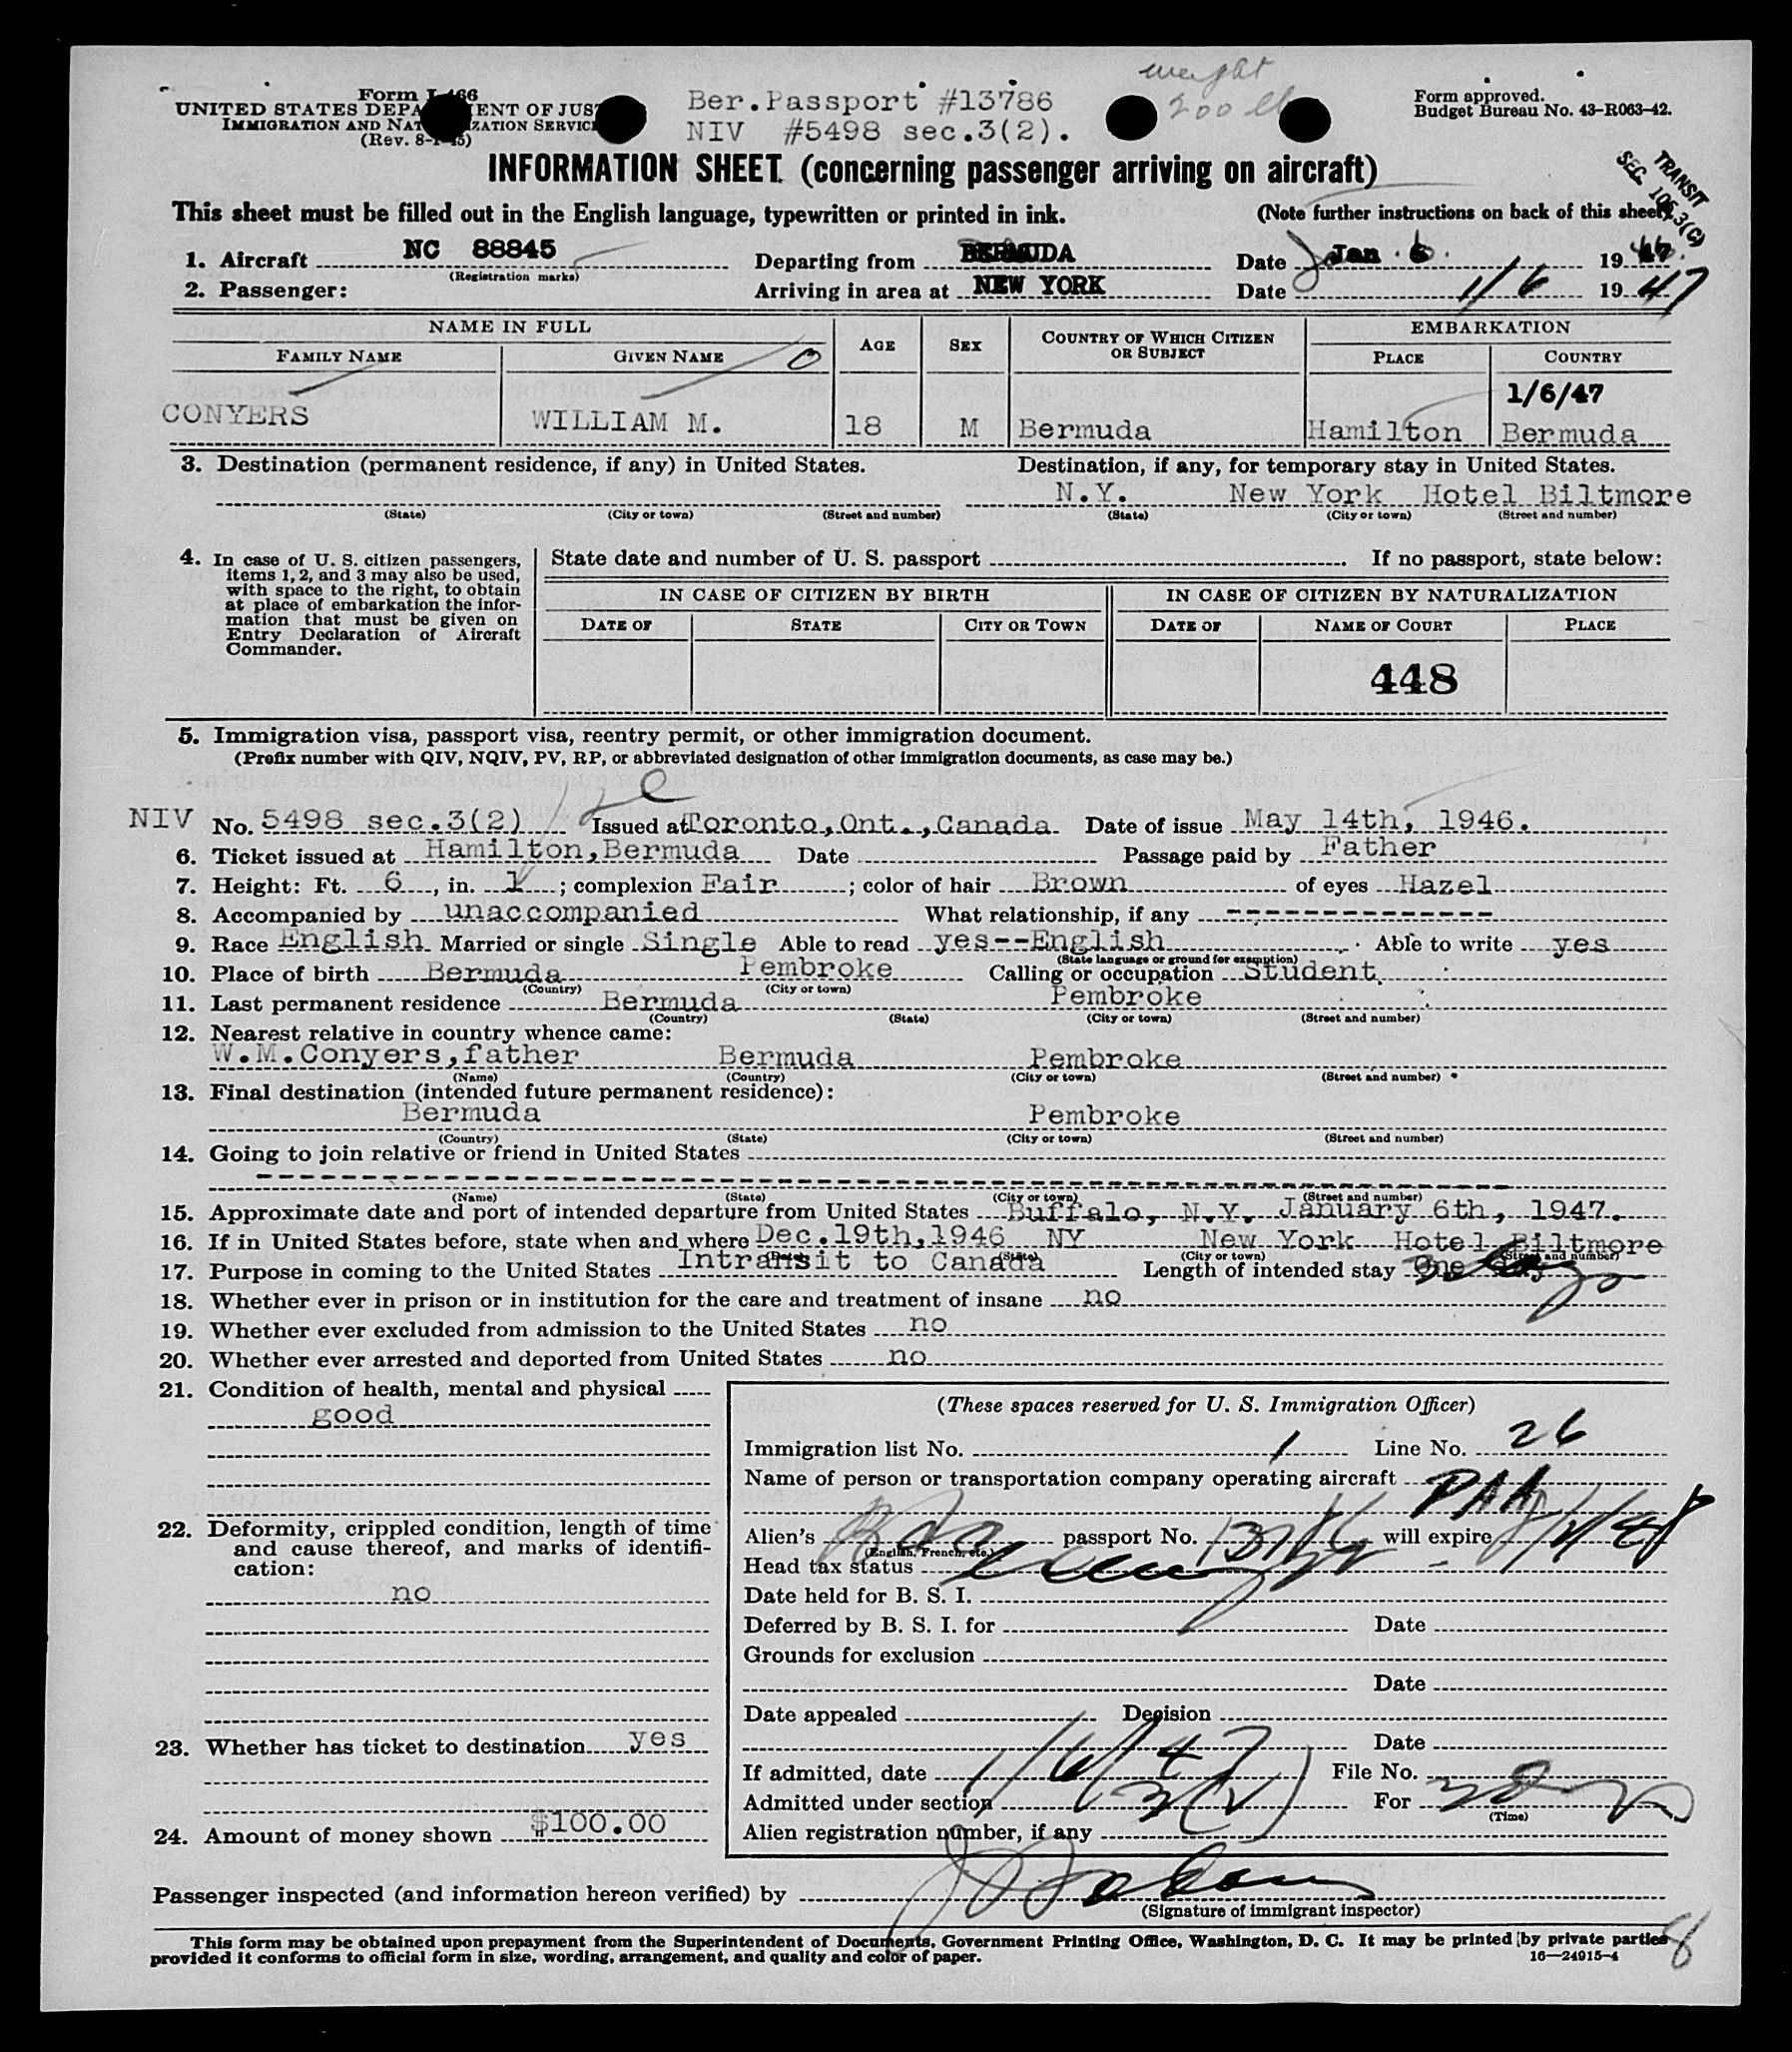 weight
200 lb
Form I-466
UNITED STATES DEPARTMENT OF JUSTICE
IMMIGRATION AND NATURALIZATION SERVICE
(Rev. 8-1-45)
Ber.Passport #13786
NIV #5498 sec.3(2).
Form approved.
Budget Bureau No. 43-R063-42.
INFORMATION SHEET (concerning passenger arriving on aircraft)
TRANSIT
SEC. 105.3(C)
This sheet must be filled out in the English language, typewritten or printed in ink. (Note further instructions on back of this sheet)
1. Aircraft NC 88845 Departing from BERMUDA Date Jan 6. 19
(Registration marks)
2. Passenger: Arriving in area at NEW YORK Date 1/6 1947
NAME IN FULL AGE SEX COUNTRY OF WHICH CITIZEN OR SUBJECT EMBARKATION
FAMILY NAME GIVEN NAME PLACE COUNTRY
1/6/47
CONYERS WILLIAM M. 18 M Bermuda Hamilton Bermuda
3. Destination (permanent residence, if any) in United States. Destination, if any, for temporary stay in United States.
N.Y. New York Hotel Biltmore
(State) (City or town) (Street and number) (State) (City or town) (Street and number)
4. In case of U. S. citizen passengers, items 1, 2, and 3 may also be used, with space to the right, to obtain at place of embarkation the information that must be given on Entry Declaration of Aircraft Commander.
State date and number of U. S. passport If no passport, state below:
IN CASE OF CITIZEN BY BIRTH IN CASE OF CITIZEN BY NATURALIZATION
DATE OF STATE CITY OR TOWN DATE OF NAME OF COURT PLACE
448
5. Immigration visa, passport visa, reentry permit, or other immigration document.
(Prefix number with QIV, NQIV, PV, RP, or abbreviated designation of other immigration documents, as case may be.)
NIV No. 5498 sec.3(2) Issued at Toronto,Ont.,Canada Date of issue May 14th, 1946.
6. Ticket issued at Hamilton,Bermuda Date Passage paid by Father
7. Height: Ft. 6, in. 1; complexion Fair; color of hair Brown of eyes Hazel
8. Accompanied by unaccompanied What relationship, if any --------------
9. Race English Married or single Single Able to read yes--English Able to write yes
(State language or ground for exemption)
10. Place of birth Bermuda Pembroke Calling or occupation Student
(Country) (City or town)
11. Last permanent residence Bermuda Pembroke
(Country) (State) (City or town) (Street and number)
12. Nearest relative in country whence came:
W.M.Conyers,father Bermuda Pembroke
(Name) (Country) (City or town) (Street and number)
13. Final destination (intended future permanent residence):
Bermuda Pembroke
(Country) (State) (City or town) (Street and number)
14. Going to join relative or friend in United States
(Name) (State) (City or town) (Street and number)
15. Approximate date and port of intended departure from United States Buffalo, N.Y. January 6th, 1947.
16. If in United States before, state when and where Dec.19th,1946 NY New York Hotel Biltmore
(Date) (State) (City or town) (Street and number)
17. Purpose in coming to the United States Intransit to Canada Length of intended stay One day
18. Whether ever in prison or in institution for the care and treatment of insane no
19. Whether ever excluded from admission to the United States no
20. Whether ever arrested and deported from United States no
21. Condition of health, mental and physical
good
22. Deformity, crippled condition, length of time and cause thereof, and marks of identification:
no
23. Whether has ticket to destination yes
24. Amount of money shown $100.00
(These spaces reserved for U. S. Immigration Officer)
Immigration list No. 1 Line No. 26
Name of person or transportation company operating aircraft PAA
Alien's passport No. 13786 will expire
(English, French, etc.)
Head tax status
Date held for B. S. I.
Deferred by B. S. I. for Date
Grounds for exclusion
Date
Date appealed Decision
Date
If admitted, date 1/6/47 File No.
Admitted under section 3(2) For
(Time)
Alien registration number, if any
Passenger inspected (and information hereon verified) by
(Signature of immigrant inspector)
This form may be obtained upon prepayment from the Superintendent of Documents, Government Printing Office, Washington, D. C. It may be printed by private parties
provided it conforms to official form in size, wording, arrangement, and quality and color of paper.
16—24915-4
8